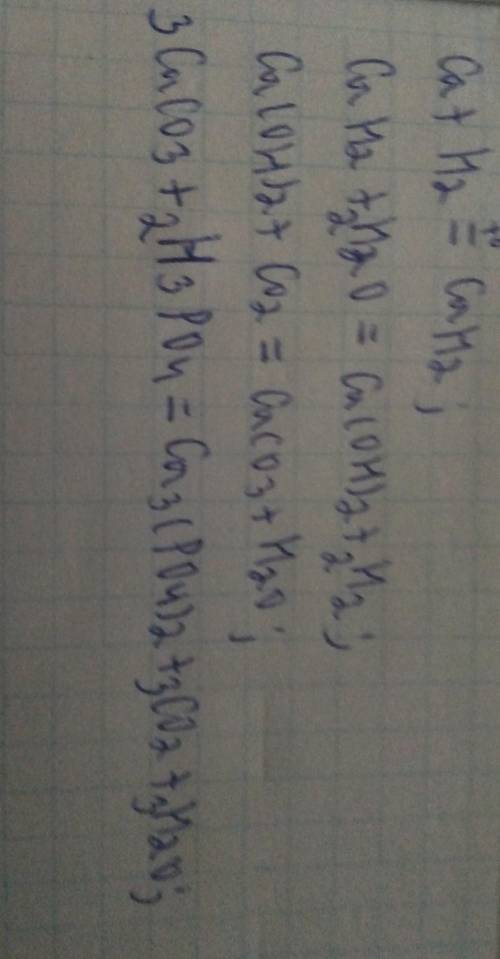 Ca + H2 =t° CaH2;
CaH2 + 2H2O = Ca(OH)2 + 2H2;
Ca(OH)2 + CO2 = CaCO3 + H2O;
3CaCO3 + 2H3PO4 = Ca3(PO4)2 + 3CO2 + 3H2O;